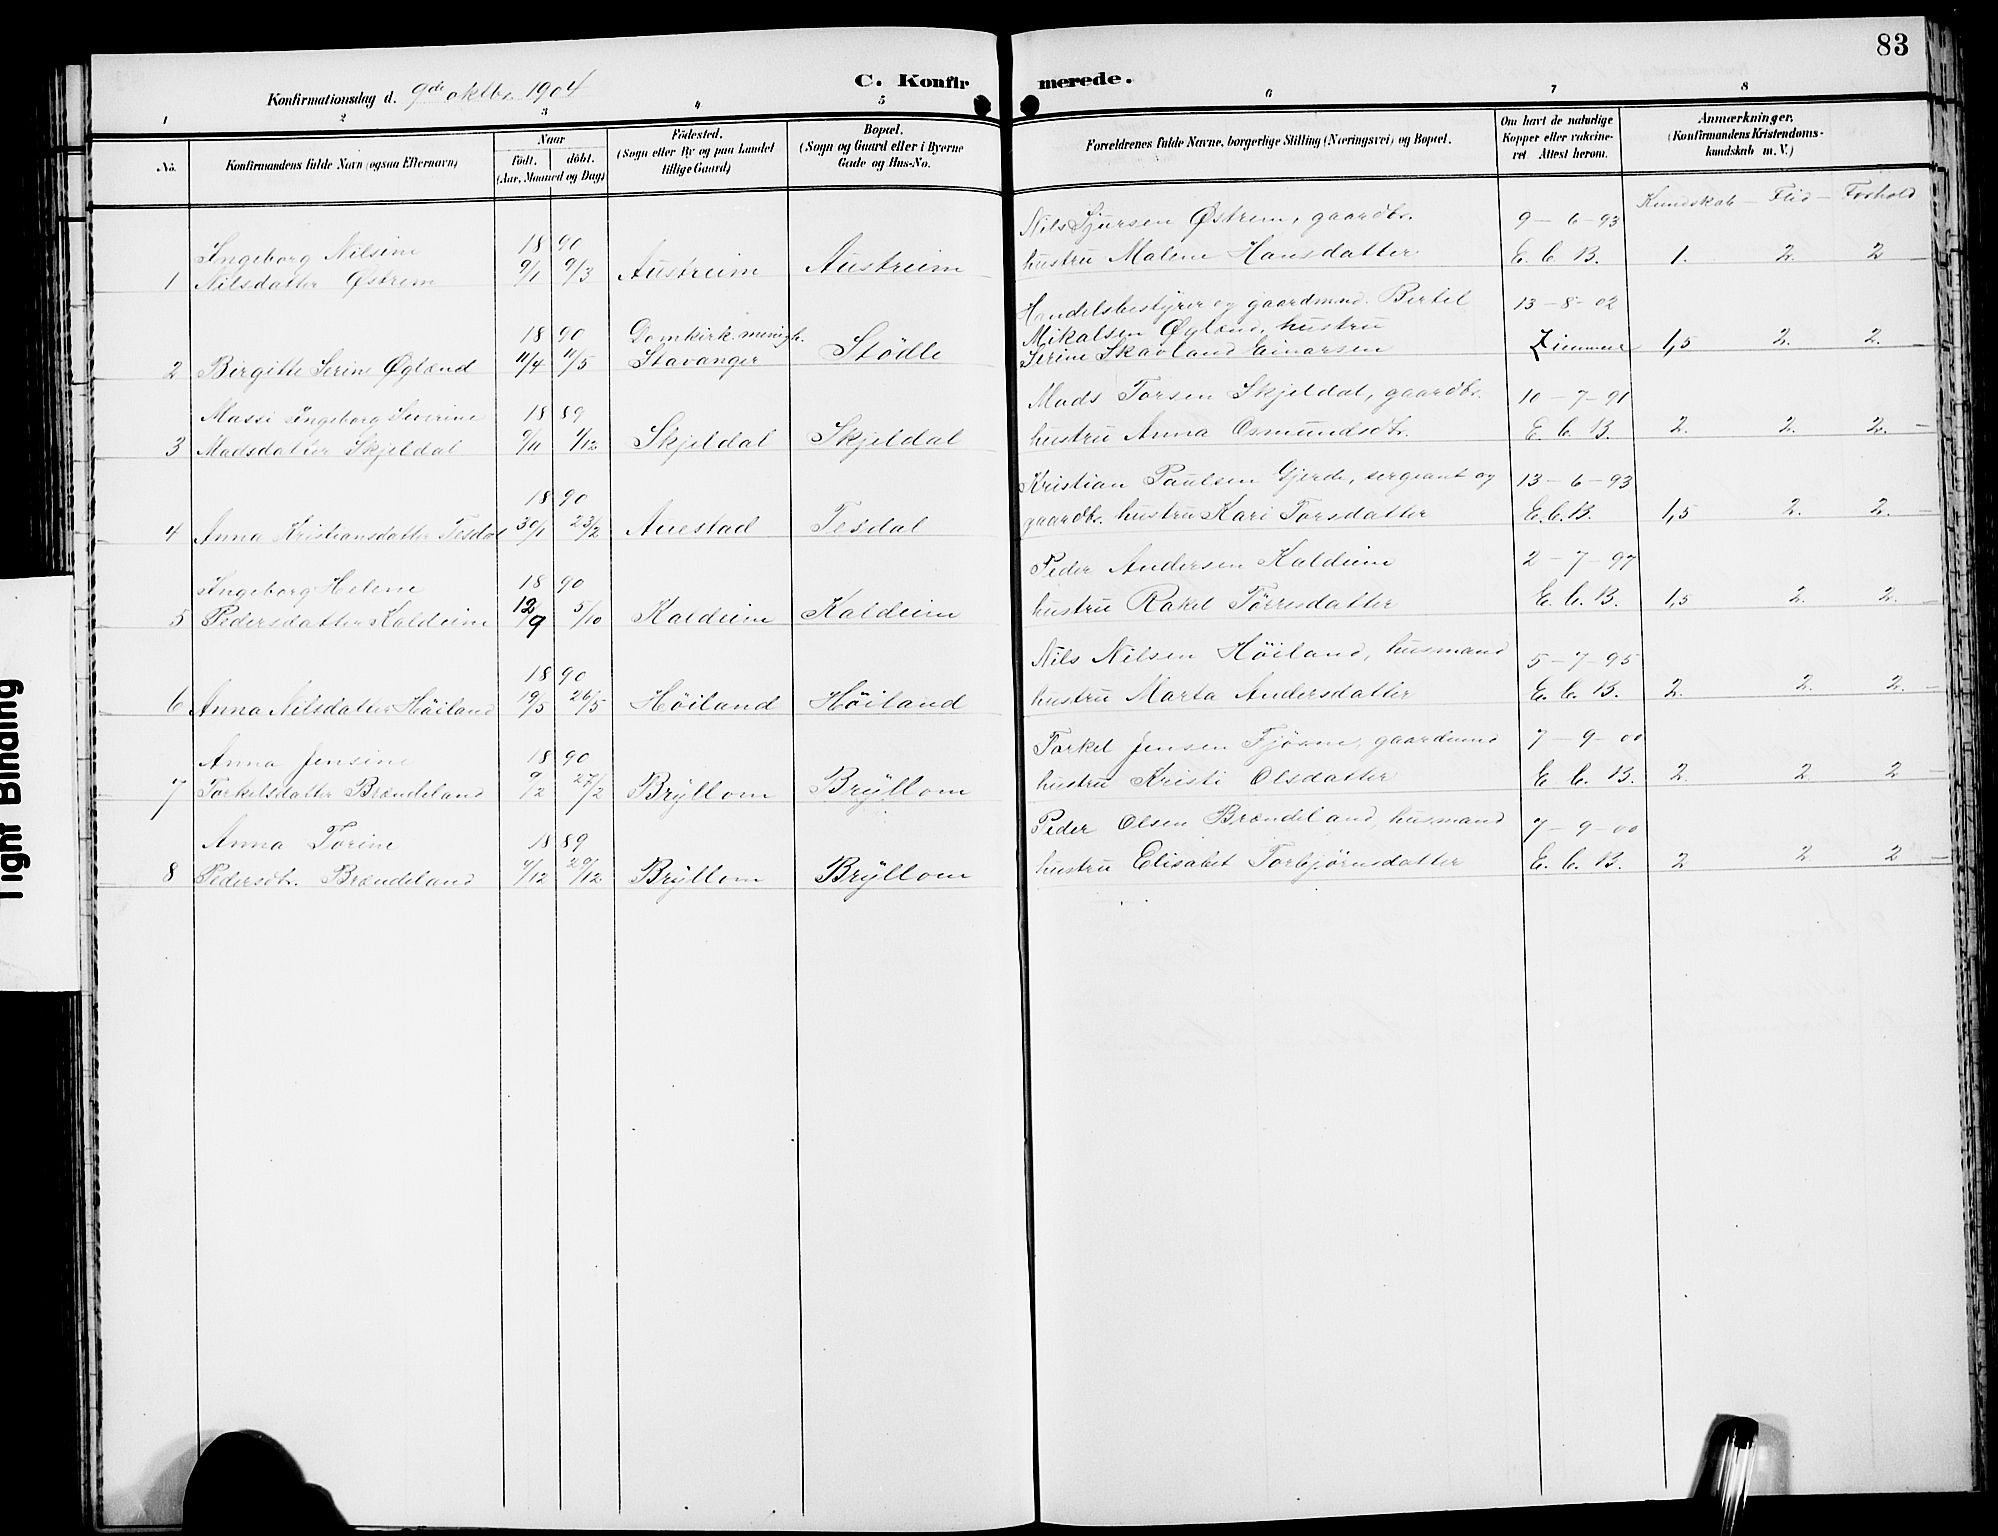 83
C. Konfirmerede.
Konfirmationsdag d. 9de oktbr. 1904
1 2 3 4 5 6 7 8
No.
Konfirmandens fulde Navn (ogsaa Efternavn)
Naar
födt. döbt.
(Aar, Maaned og Dag)
Födested.
(Sogn eller By og paa Landet
tillige Gaard)
Bopæl.
(Sogn og Gaard eller i Byerne
Gade og Hus-No.
Forældrenes fulde Navne, borgerlige Stilling (Næringsvei) og Bopæl.
Om havt de naturlige
Kopper eller vakcine-
ret Attest herom.
Anmærkninger.
(Konfirmandens Kristendoms-
kundskab m. V.)
Kundskab – Flid – Forhold
Nils Sjursen Østrem, gaardbr. 9 – 6 – 93
Ingeborg Nilsine 18 90
1 Nilsdatter Østrem 9/1 9/3 Austreim Austreim hustru Malene Hansdatter E. C. B. 1. 2. 2
Handelsbestyrer og gaardmnd. Bertel 13 – 8 – 02
18 90 Domkirk. menigh. Mikalsen Øgland, hustru
2 Birgitte Serine Øgland 11/4 11/5 Stavanger Stødle Serine Skavland Einarsen Zimmer 1,5 2. 2.
Mads Torsen Skjeldal, gaardbr. 10 – 7 – 91
Massi Ingeborg Severine 18 89
3 Madsdatter Skjeldal 9/11 1/12 Skjeldal Skjeldal hustru Anna Osmundsdtr. E. C. B. 2. 2. 2.
Kristian Paulsen Gjerde, sergeant og 13 – 6 – 93
18 90
4 Anna Kristiansdatter Tesdal 30/1 23/2 Auestad Tesdal gaardbr. hustru Kari Torsdatter E. C. B. 1,5 2. 2.
Peder Andersen Kaldeim 2 – 7 – 97
Ingeborg Helene 18 90
5 Pedersdatter Kaldeim 12/9 5/10 Kaldeim Kaldeim hustru Rakel Tørresdatter E. C. B. 1,5 2. 2.
Nils Nilsen Høiland, husmand 5 – 7 – 95
18 90
6 Anna Nilsdatter Høiland 19/5 26/5 Høiland Høiland hustru Marta Andersdatter E. C. B. 2. 2. 2.
Torkel Jensen Fjøsne, gaardmnd 7 – 9 – 00
Anna Jensine 18 90
7 Torkelsdatter Brændeland 9/2 27/2 Brÿllom Brÿllom hustru Kristi Olsdatter E. C. B. 2. 2. 2
Peder Olsen Brændeland, husmand 7 – 9 – 00
Anna Torine 18 89
8 Pedersdtr. Brændeland 9/12 29/12 Brÿllom Brÿllom hustru Elisabet Torbjørnsdatter E. C. B. 2 2 2
Tight Binding